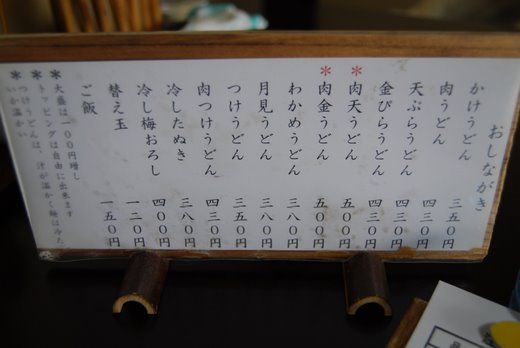 おしながき
かけうどん 三五〇円
肉うどん 四三〇円
天ぷらうどん 四三〇円
金ぴらうどん 四三〇円
*肉天うどん 五〇〇円
*肉金うどん 五〇〇円
わかめうどん 三八〇円
月見うどん 三八〇円
つけうどん 三五〇円
肉つけうどん 四三〇円
冷したぬき 三八〇円
冷し梅おろし 四〇〇円
替え玉 一二〇円
ご飯 一五〇円
*大盛は一〇〇円増し
*トッピングは自由に出来ます
*つけうどんは、汁が温かく麺は冷た
いか温かい